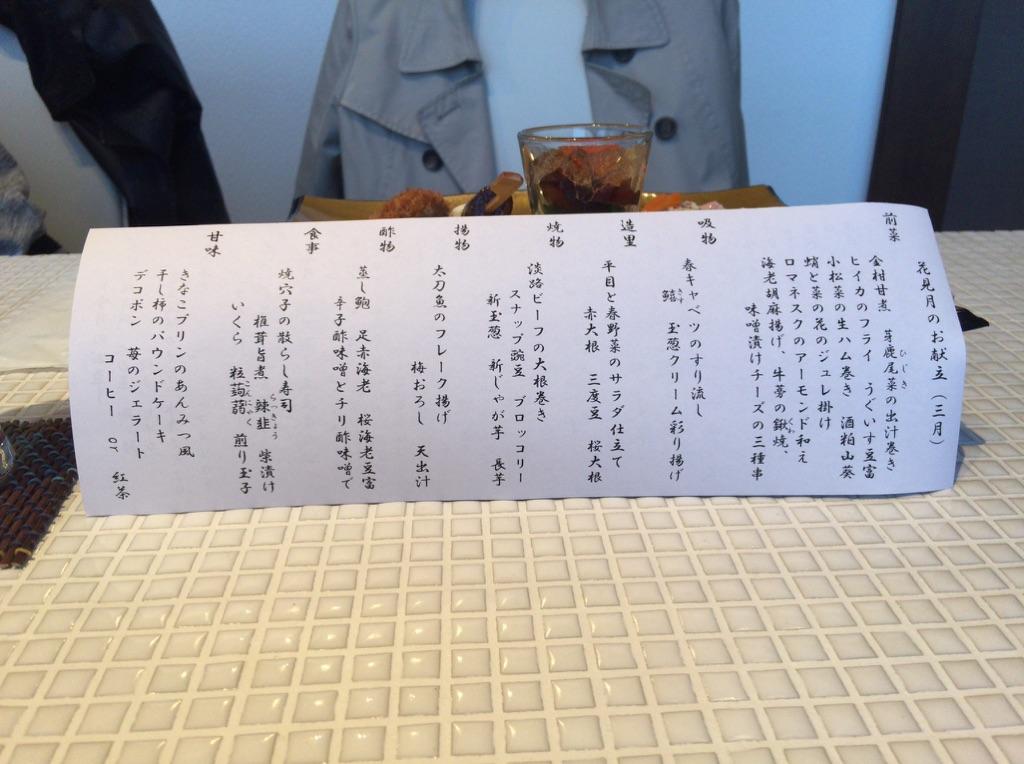 花見月のお献立（三月）
前菜
金柑甘煮　芽鹿尾菜の出汁巻き
ひじき
ヒイカのフライ　うぐいす豆富
小松菜の生ハム巻き　酒粕山葵
蛸と菜の花のジュレ掛け
ロマネスクのアーモンド和え
海老胡麻揚げ、牛蒡の鍬焼、
くわ
味噌漬けチーズの三種串
吸物
春キャベツのすり流し
鱚　玉葱クリーム彩り揚げ
きす
造里
平目と春野菜のサラダ仕立て
赤大根　三度豆　桜大根
焼物
淡路ビーフの大根巻き
スナップ豌豆　ブロッコリー
新玉葱　新じゃが芋　長芋
揚物
太刀魚のフレーク揚げ
梅おろし　天出汁
酢物
蒸し鮑　足赤海老　桜海老豆富
辛子酢味噌とチリ酢味噌で
食事
焼穴子の散らし寿司
椎茸旨煮　辣韮　柴漬け
らっきょう
いくら　粒蒟蒻　煎り玉子
こんにゃく
甘味
きなこプリンのあんみつ風
干し柿のパウンドケーキ
デコポン　苺のジェラート
コーヒー　or　紅茶